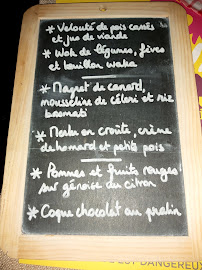 * Velouté de pois cassés
et jus de viande
* Wok de légumes, fèves
et bouillon waka
* Magret de canard,
mousseline de céleri et riz
basmati
* Merlu en croûte, crème
de homard et petits pois
* Pommes et fruits rouges
sur génoise du citron
* Coque chocolat au pralin
EST DANGEREUX